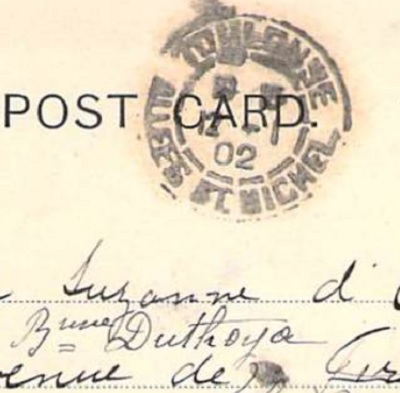 TOULOUSE
POST CARD.
02
ALLÉES ST. MICHEL
Suzanne d'
Bnne Duthoya
venue de